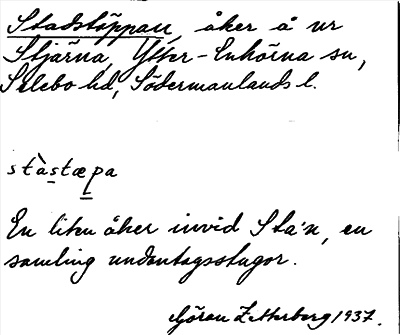 Stadstäppan, åker å nr
Stjärna, Ytter-Enhörna sn,
Selebo hd, Södermanlands l.
stàstæpa
En liten åker invid Sta'n, en
samling undantagsstugor.
Göran Zetterberg 1937.